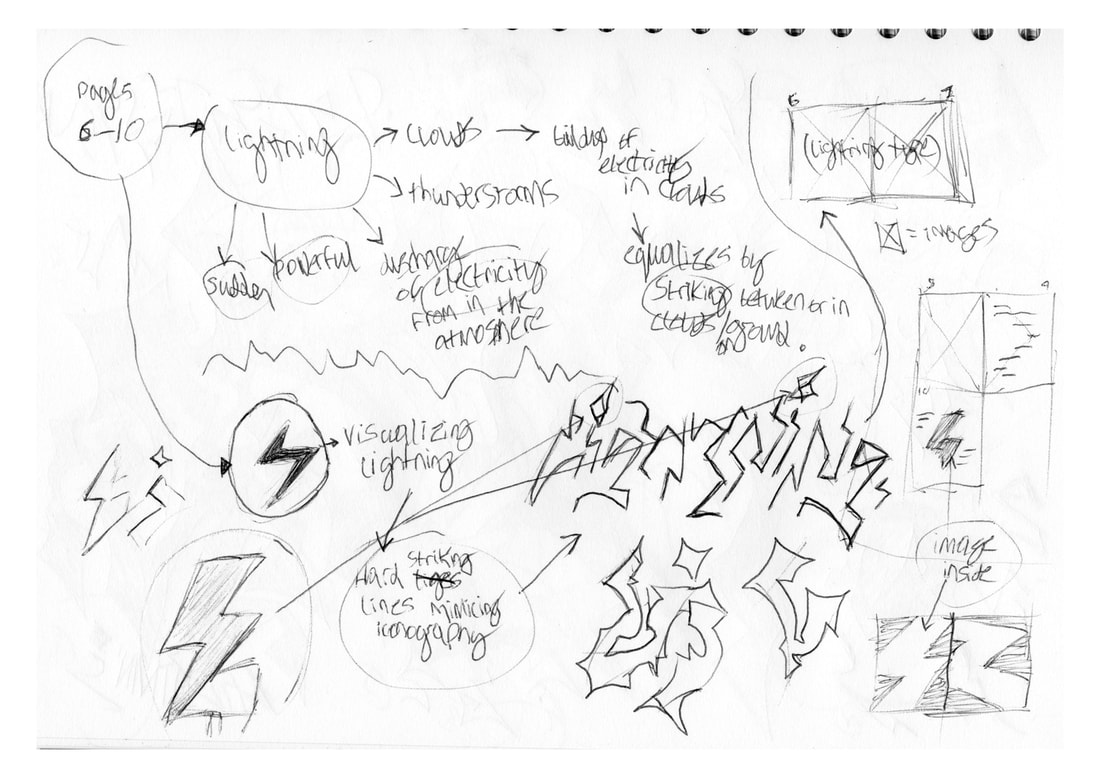 pages
6-10
lightning
clouds
buildup of
electricity
in clouds
thunderstorms
sudden
powerful
discharge
of electricity
from in the
atmosphere
equalizes by
striking between or in
clouds/ground
on
.
6
7
(lightning type)
= images
9
10
visualizing
lightning
Lightning
Hard striking
lines mimicing
iconography
image
inside